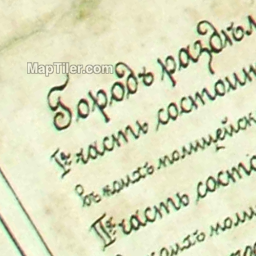 MapTiler.com
Городъ раздѣл
Iя часть состоит
въ коихъ полицейск
IIя часть состо
коихъ поли